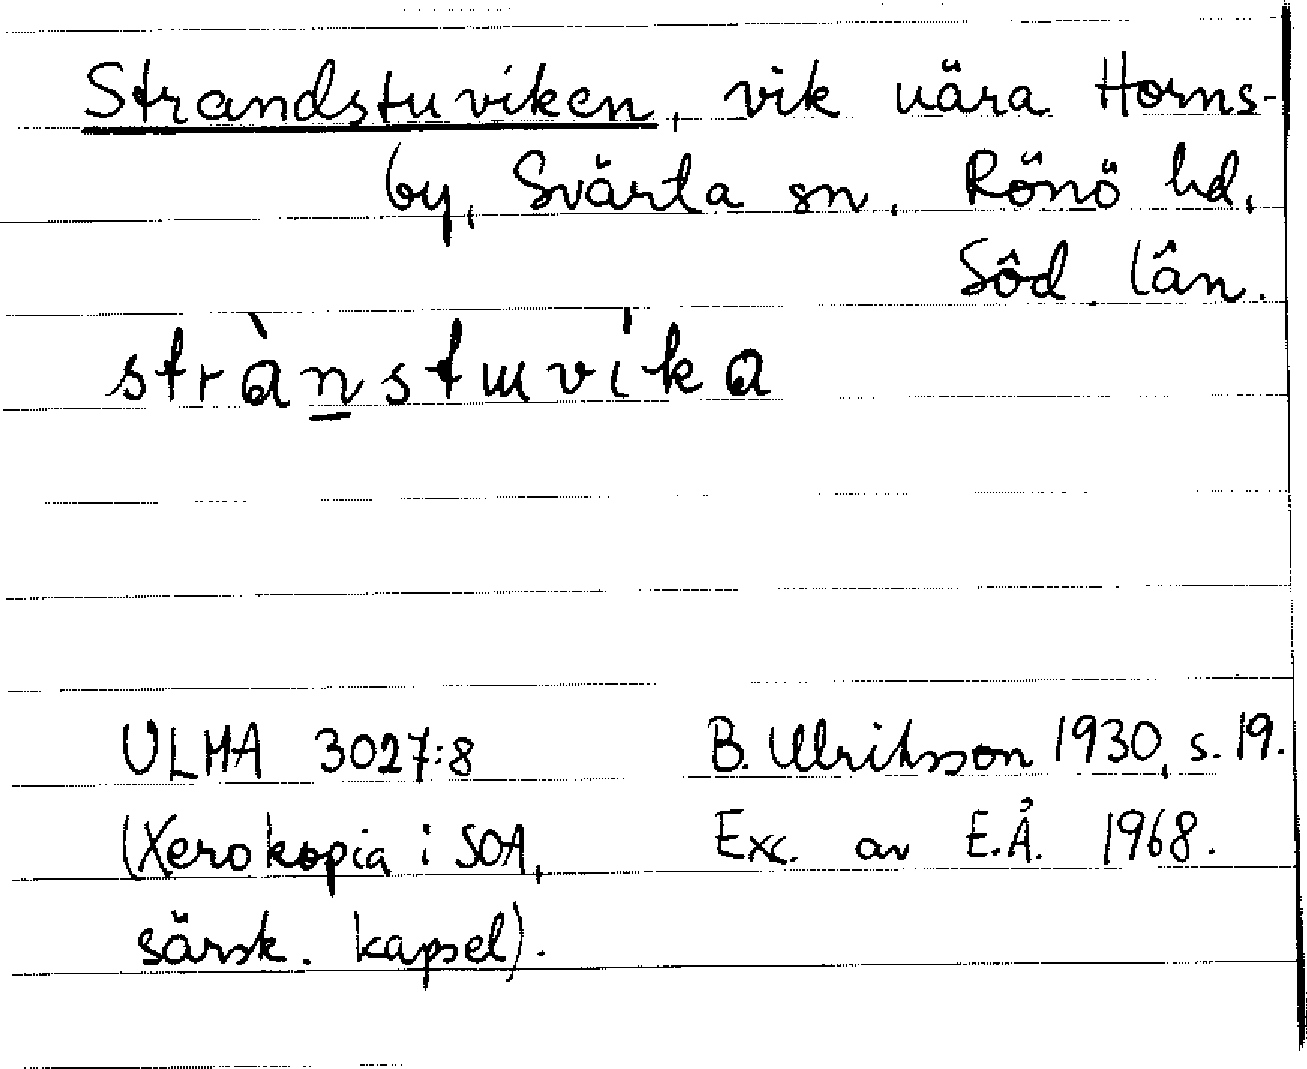 Strandstuviken, vik nära Horns-
by, Svärta sn, Rönö hd,
Söd. län.
strànstɯvíka
ULMA 3027:8 B. Ulriksson 1930, s. 19.
(Xerokopia i SOA, Exc. av E.Å. 1968.
särsk. kapsel).